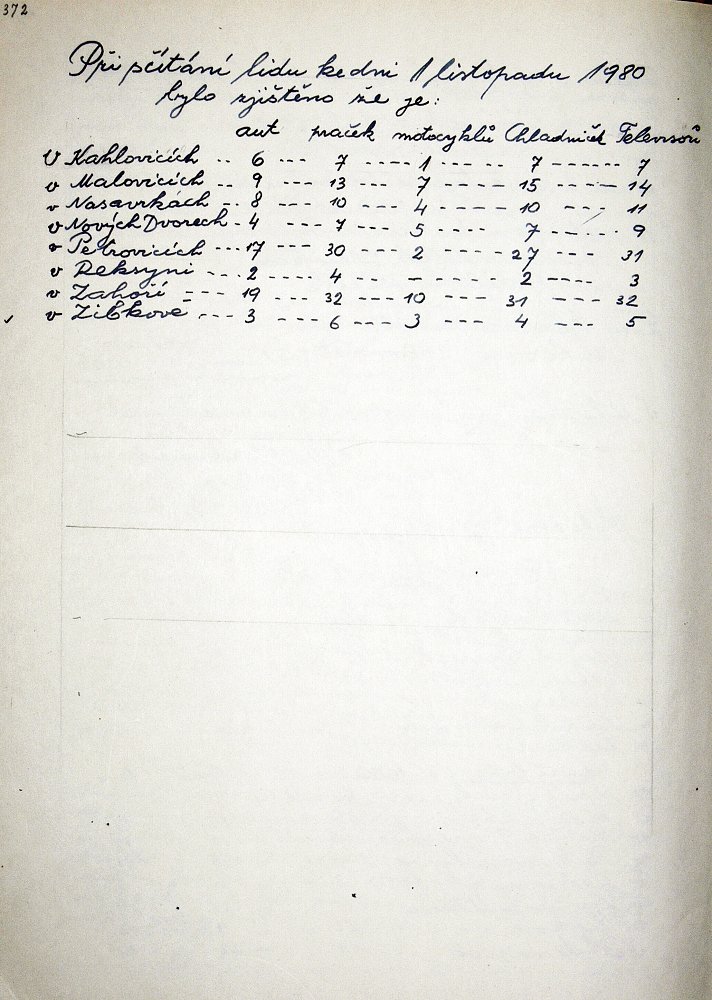 372
Při sčítání lidu ke dni 1 listopadu 1980
bylo zjištěno že je:
aut praček motocyklů Chladniček Televisorů
V Kahlovicích .. 6 --- 7 ---- 1 ---- 7 ------ 7
v Malovicích .. 9 --- 13 --- 7 ---- 15 ---- 14
v Nasavrkách -- 8 --- 10 --- 4 ---- 10 ---- 11
v Nových Dvorech - 4 --- 7 --- 5 ---- 7 ---- 9
v Petrovicích --- 17 --- 30 --- 2 ---- 27 ---- 31
v Reksyni --- 2 ---- 4 --- - ---- 2 ---- 3
v Zahoří --- 19 --- 32 --- 10 --- 31 --- 32
v Žibkově --- 3 --- 6 --- 3 --- 4 --- 5